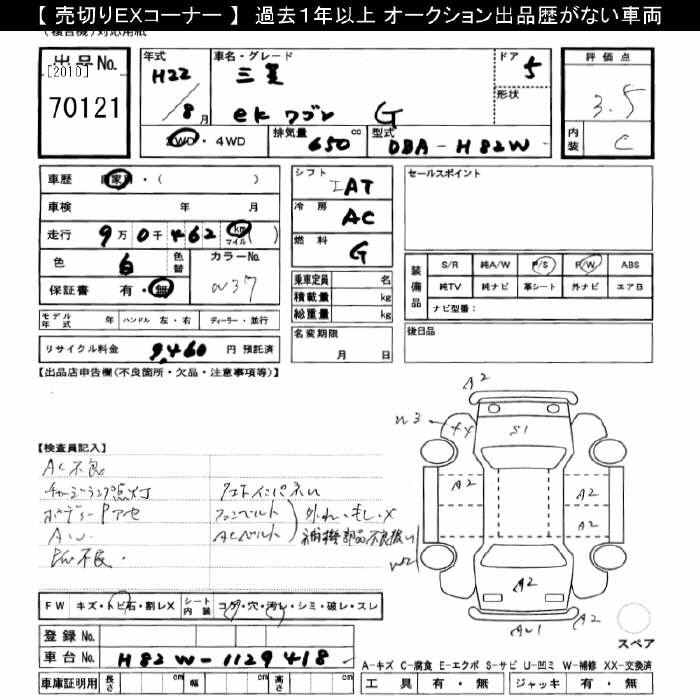 【 売切りEXコーナー 】 過去１年以上 オークション出品歴がない車両
出 品 No.
[2010]
70121
年式
H22
8 月
車名・グレード
三菱
ek ワゴン G
ドア
5
形状
評 価 点
3.5
内装
C
2WD・4WD
排気量 650 cc
型式 DBA-H82W
車歴 自家・( )
車検 年 月
走行 9万 0千 462 km マイル ( )
色 白 色替
カラーNo. W37
保証書 有・無
シフト IAT
冷房 AC
燃料 G
セールスポイント
装備品
S/R 純A/W P/S P/W ABS
純TV 純ナビ 革シート 外ナビ エアB
ナビ型番：
乗車定員 名
積載量 kg
総重量 kg
モデル年式 年 ハンドル 左・右 ディーラー・並行
リサイクル料金 9,460 円 預託済
名変期限 月 日
後日品
【出品店申告欄(不良箇所・欠品・注意事項等)】
【検査員記入】
AC不良
チャージランプ点灯
ボディーPアセ
AU
PW不良
フロントインパネい
ファンベルト
ACベルト
外れ・もしX
補機部品不良扱い
A2
W3
XX
S1
A2
A2
A2
A2
W2
A2
AU1
A2
スペア
FW キズ・トビ石・割レX
シート内装 コゲ・穴・汚レ・シミ・破レ・スレ
登録 No.
車台 No. H82W-1129418
車庫証明用 長さ cm 幅 cm 高さ cm
A-キズ C-腐食 E-エクボ S-サビ U-凹ミ W-補修 XX-交換済
工 具 有・無 ジャッキ 有・無